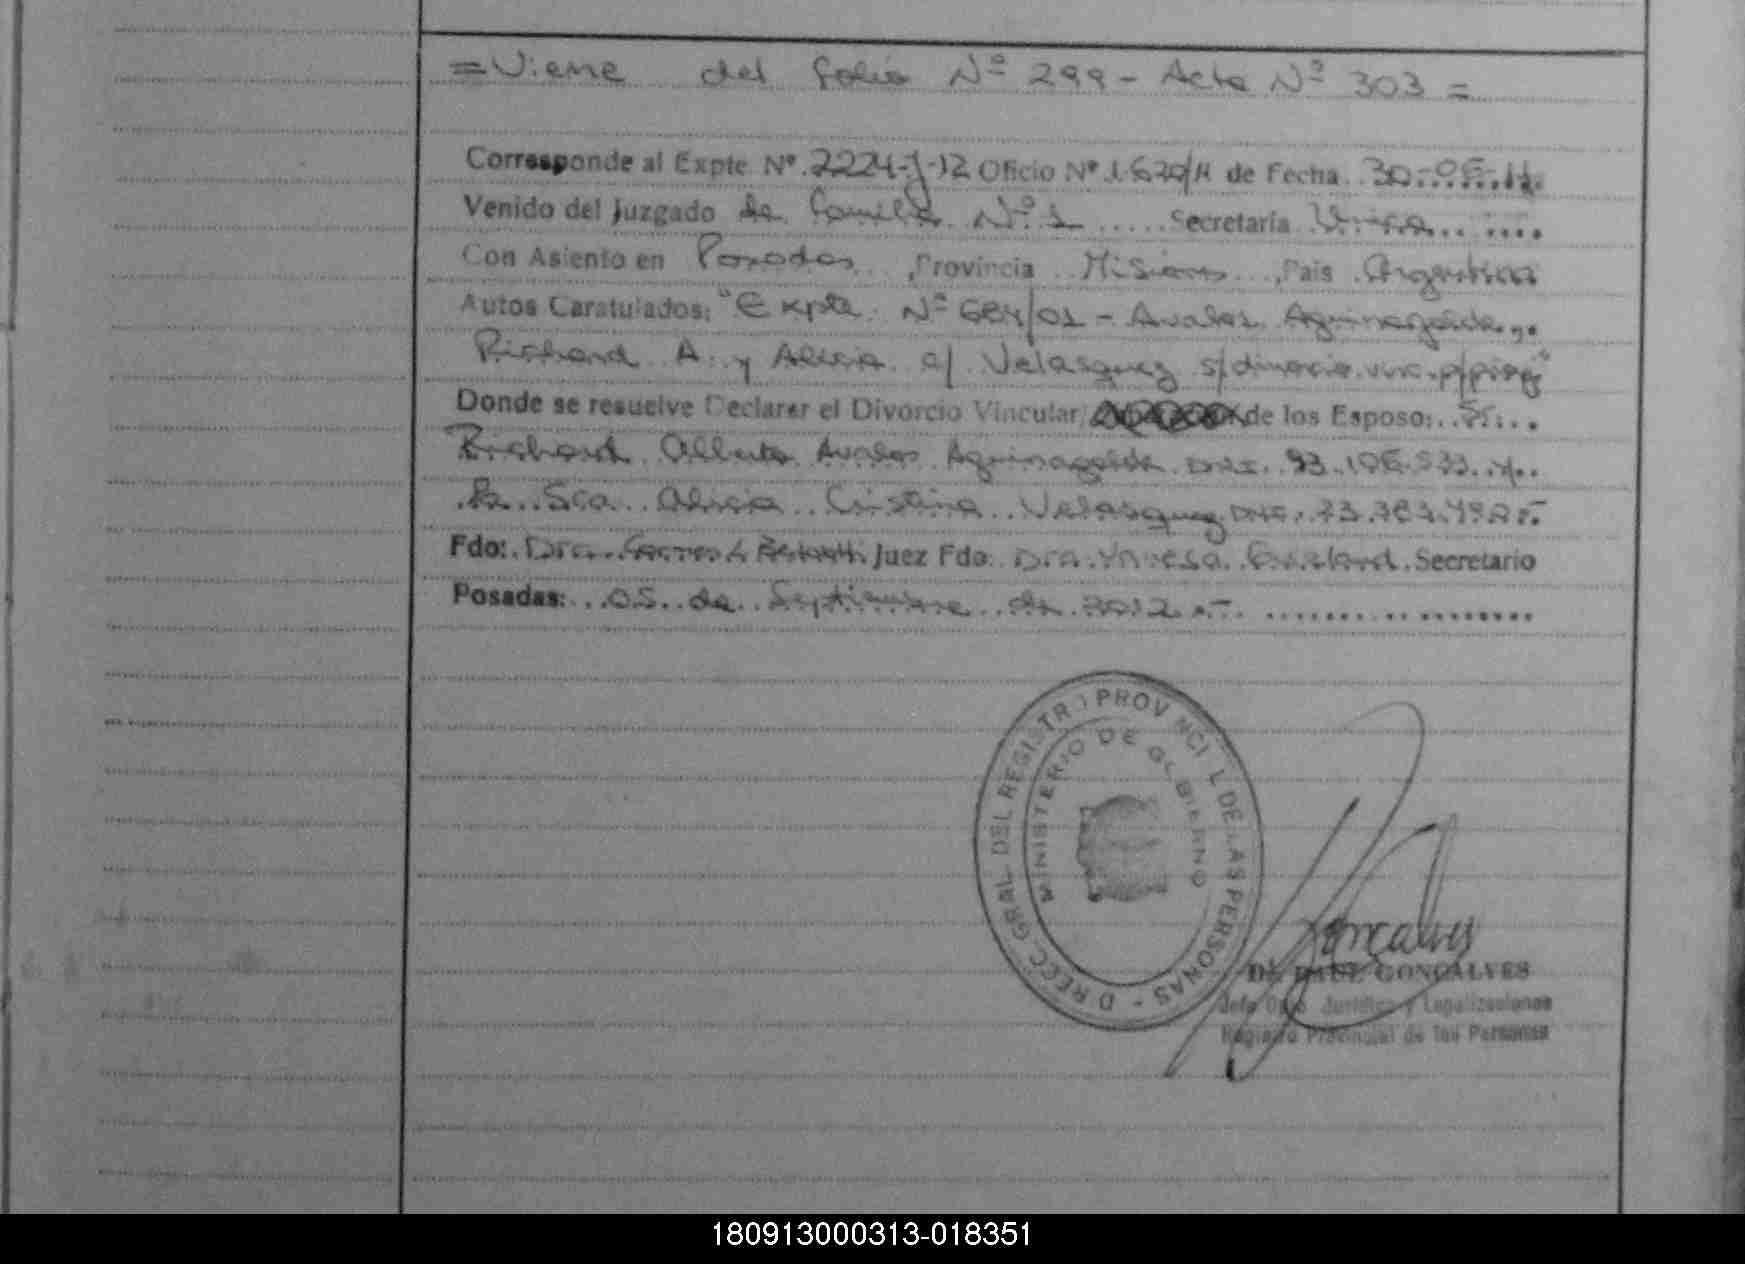 = Viene del folio Nº 299 - Acta Nº 303 =
Corresponde al Expte Nº 2224-J-12 Oficio Nº 1.620/11 de Fecha
Venido del Juzgado de Familia Nº 1 ..... Secretaría Única
Con Asiento en Posadas, Provincia Misiones, País Argentina
Autos Caratulados: "Expte. Nº 684/01 - Avalos Aguinagalde
Richard A. y Alicia c/ Velasquez s/divorcio vinc. p/
Donde se resuelve Declarar el Divorcio Vincular de los Esposo: Sr.
Richard Alberto Avalos Aguinagalde DNI. 93.106.533 y
la Sra. Alicia Cristina Velasquez DNI.
Fdo: Dra. Juez Fdo: Dra. Vanesa Secretario
Posadas: 05 de Septiembre de 2012.-
DIRECC. GRAL. DEL REGISTRO PROVINCIAL DE LAS PERSONAS -
MINISTERIO DE GOBIERNO
Goncalves
RAUL GONCALVES
Jefe Dpto. Jurídico y Legalizaciones
Registro Provincial de las Personas
180913000313-018351